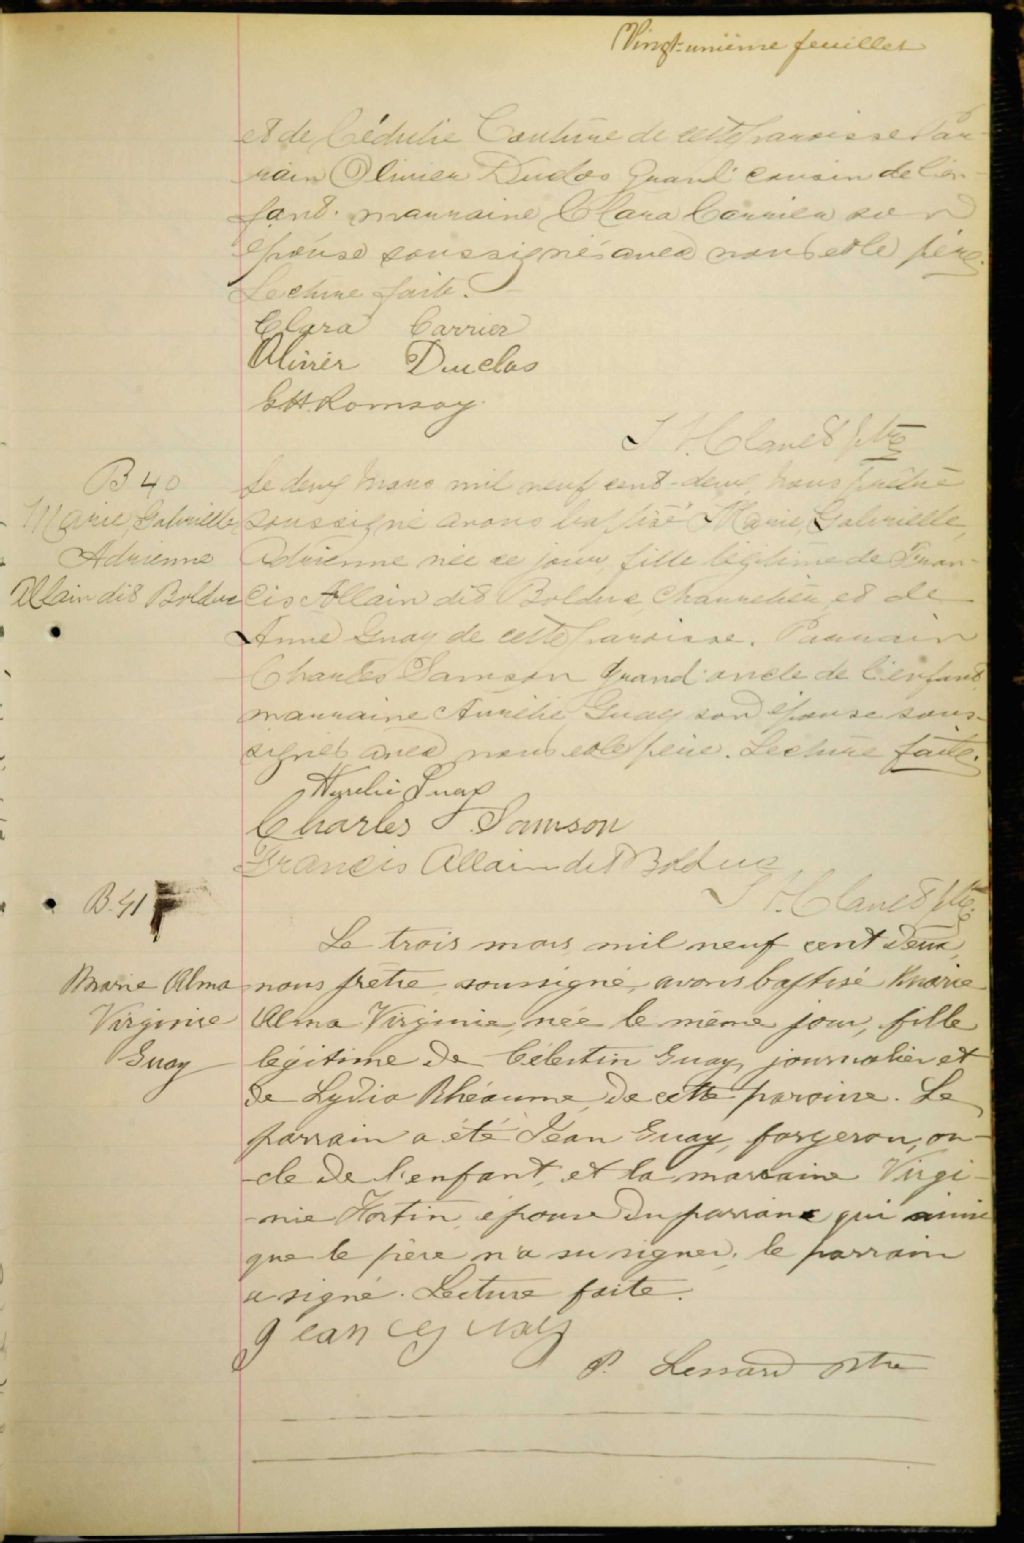 Vingt-unième feuillet
et de Cédulie Couture de cette paroisse Par-
rain Olivier Duclos Grand cousin de l'en-
fant. marraine Clara Carrier son
épouse soussignés avec nous et le père.
Lecture faite.
Clara Carrier
Olivier Duclos
Ptre
B 40
Marie, Gabrielle,
Adrienne
Allain dit Bolduc
Le deux Mars mil neuf cent-deux, Nous prêtre
soussigné avons baptisé Marie, Gabrielle,
Adrienne née ce jour, fille légitime de Fran-
cis Allain dit Bolduc, charretier, et de
Anne Guay de cette paroisse. Parrain
Charles Samson grand'oncle de l'enfant,
marraine Aurélie Guay son épouse sous-
signés avec nous et le père. Lecture faite.
Aurelie Guay
Charles Samson
Francis Allain dit Bolduc
Ptre
B. 41
Marie Alma
Virginie
Guay
Le trois mars mil neuf cent deux,
nous prêtre soussigné, avons baptisé Marie
Alma Virginie, née le même jour, fille
légitime de Célestin Guay, journalier et
de Lydia Rhéaume, de cette paroisse. Le
parrain a été Jean Guay, forgeron, on-
-cle de l'enfant, et la marraine Virgi-
-nie Fortin, épouse du parrain qui ainsi
que le père n'a su signer, le parrain
a signé. Lecture faite.
Jean Guay
P. Lessard ptre